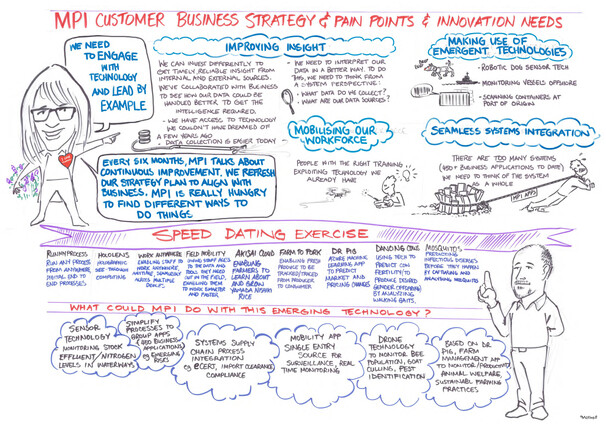 MPI CUSTOMER BUSINESS STRATEGY & PAIN POINTS & INNOVATION NEEDS
WE NEED
TO ENGAGE
WITH
TECHNOLOGY
AND LEAD BY
EXAMPLE
IMPROVING INSIGHT
WE CAN INVEST DIFFERENTLY TO
GET TIMELY, RELIABLE INSIGHT FROM
INTERNAL AND EXTERNAL SOURCES.
WE'VE COLLABORATED WITH BUSINESS
TO SEE HOW OUR DATA COULD BE
HANDLED BETTER TO GET THE
INTELLIGENCE REQUIRED.
- WE HAVE ACCESS TO TECHNOLOGY
WE COULDN'T HAVE DREAMED OF
A FEW YEARS AGO
- DATA COLLECTION IS EASIER TODAY
- WE NEED TO INTERPRET OUR
DATA IN A BETTER WAY. TO DO
THIS, WE NEED TO THINK FROM
A SYSTEM PERSPECTIVE!
- WHAT DATA DO WE COLLECT?
- WHAT ARE OUR DATA SOURCES?
MAKING USE OF
EMERGENT TECHNOLOGIES
- ROBOTIC DOG SENSOR TECH
- MONITORING VESSELS OFFSHORE
- SCANNING CONTAINERS AT
PORT OF ORIGIN
MOBILISING OUR
WORKFORCE
PEOPLE WITH THE RIGHT TRAINING
EXPLOITING TECHNOLOGY WE
ALREADY HAVE
SEAMLESS SYSTEMS INTEGRATION
THERE ARE TOO MANY SYSTEMS
(450+ BUSINESS APPLICATIONS TO DATE)
WE NEED TO THINK OF THE SYSTEM
AS A WHOLE
MPI APPS
EVERY SIX MONTHS, MPI TALKS ABOUT
CONTINUOUS IMPROVEMENT. WE REFRESH
OUR STRATEGY PLAN TO ALIGN WITH
BUSINESS. MPI IS REALLY HUNGRY
TO FIND DIFFERENT WAYS TO
DO THINGS
SPEED DATING EXERCISE
RUNMYPROCESS
RUN ANY PROCESS
FROM ANYWHERE,
DIGITAL END TO
END PROCESSES
HOLOLENS
HOLOGRAPHIC
SEE-THROUGH
COMPUTING
WORK ANYWHERE
ENABLING STAFF TO
WORK ANYWHERE,
ANYTIME SEAMLESSLY
ACROSS MULTIPLE
DEVICES
FIELD MOBILITY
GIVING STAFF ACCESS
TO THE DATA AND
TOOLS THEY NEED
OUT IN THE FIELD,
ENABLING THEM
TO WORK SMARTER
AND FASTER
AKISAI CLOUD
ENABLING
FARMERS TO
LEARN ABOUT
AND GROW
YAMADA NISHIKI
RICE
FARM TO FORK
ENABLING FRESH
PRODUCE TO BE
TRACKED/TRACED
FROM PRODUCER
TO CONSUMER
DR PIG
AZURE MACHINE
LEARNING APP
TO PREDICT
MARKET AND
PRICING CHANGES
DANCING COWS
USING TECH TO
PREDICT COW
FERTILITY/TO
PRODUCE DESIRED
GENDER OFFSPRING
BY ANALYZING
WALKING GAITS.
MOSQUITOS
PREDICTING
INFECTIOUS DISEASES
BEFORE THEY HAPPEN
BY CAPTURING AND
ANALYSING MOSQUITOS
WHAT COULD MPI DO WITH THIS EMERGING TECHNOLOGY?
SENSOR
TECHNOLOGY
MONITORING STOCK
EFFLUENT/NITROGEN
LEVELS IN WATERWAYS
SIMPLIFY
PROCESSES TO
GROUP APPS
(450 BUSINESS
APPLICATIONS)
EG EMERGING
RISKS
SYSTEMS SUPPLY
CHAIN PROCESS
INTEGRATION
eg ECERT, IMPORT CLEARANCE
COMPLIANCE
MOBILITY APP
SINGLE ENTRY
SOURCE FOR
SURVEILLANCE, REAL
TIME MONITORING
DRONE
TECHNOLOGY
TO MONITOR BEE
POPULATION, GOAT
CULLING, PEST
IDENTIFICATION
BASED ON DR
PIG, FARM
MANAGEMENT APP
TO MONITOR PRODUCTIVITY,
ANIMAL WELFARE,
SUSTAINABLE FARMING
PRACTICES